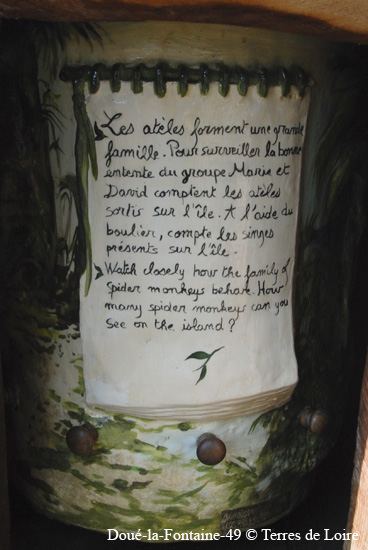 Les atèles forment une grande
famille. Pour surveiller la bonne
entente du groupe Marie et
David comptent les atèles
sortis sur l'île. A l'aide du
boulier, compte les singes
présents sur l'île.
Watch closely how the family of
spider monkeys behave. How
many spider monkeys can you
see on the island?
Doué-la-Fontaine-49 © Terres de Loire